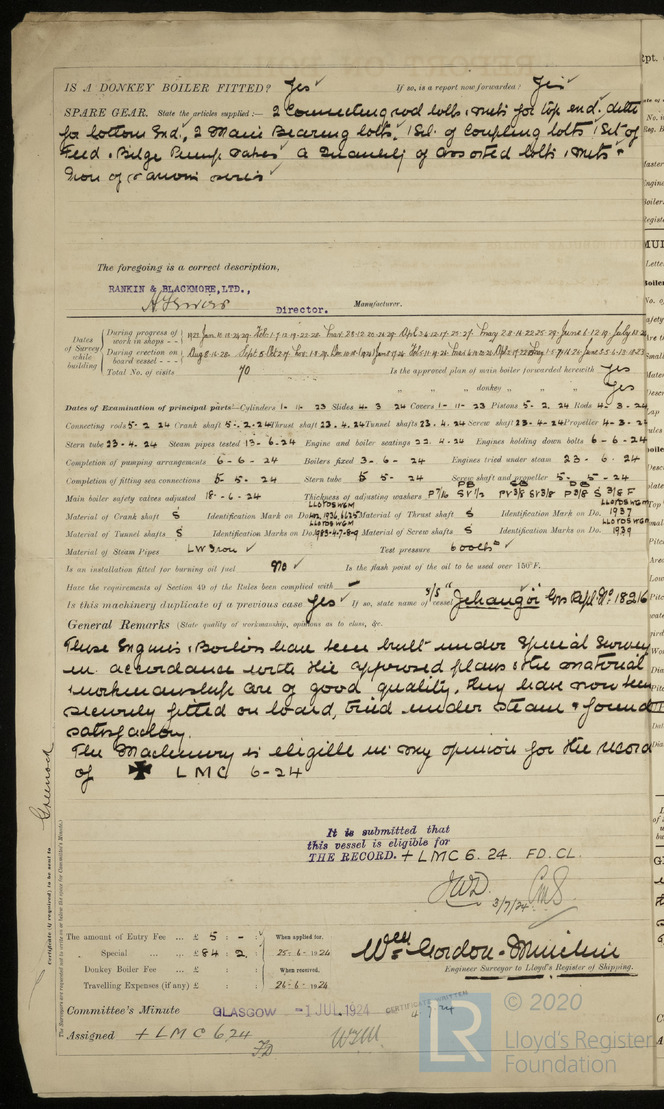 IS A DONKEY BOILER FITTED? Yes ✓ If so, is a report now forwarded? Yes ✓
SPARE GEAR. State the articles supplied:— 2 Connecting rod bolts & nuts for top end. ditto
for bottom End, 2 Main Bearing bolts, 1 Set of Coupling bolts 1 Set of
Feed & Bilge Pump valves ✓ a Quantity of assorted bolts & nuts &
Iron of various sizes ✓
The foregoing is a correct description,
RANKIN & BLACKMORE, LTD.,
Director. Manufacturer.
Dates of Survey while building
During progress of work in shops - -
During erection on board vessel - - -
Total No. of visits 70 Is the approved plan of main boiler forwarded herewith Yes
" " " donkey " " " Yes
Dates of Examination of principal parts—Cylinders 1-11-23 Slides 4-3-24 Covers 1-11-23 Pistons 5-2-24 Rods 4-3-24
Connecting rods 5-2-24 Crank shaft 5-2-24 Thrust shaft 23.4.24 Tunnel shafts 23.4.24 Screw shaft 23-4-24 Propeller 4-3-24
Stern tube 23-4-24 Steam pipes tested 13-6-24 Engine and boiler seatings 22.4-24 Engines holding down bolts 6-6-24
Completion of pumping arrangements 6-6-24 Boilers fixed 3-6-24 Engines tried under steam 23-6-24
Completion of fitting sea connections 5-5-24 Stern tube 5 5-24 Screw shaft and propeller 5-5-24
Main boiler safety valves adjusted 18-6-24 Thickness of adjusting washers
Material of Crank shaft S Identification Mark on Do. LLOYDS WGM Material of Thrust shaft S Identification Mark on Do. LLOYDS WGM 1937
Material of Tunnel shafts S Identification Marks on Do. LLOYDS WGM Material of Screw shafts S Identification Marks on Do. LLOYDS WGM 1939
Material of Steam Pipes L W Iron ✓ Test pressure 600 lbs ✓
Is an installation fitted for burning oil fuel No ✓ Is the flash point of the oil to be used over 150°F.
Have the requirements of Section 49 of the Rules been complied with —
Is this machinery duplicate of a previous case Yes ✓ If so, state name of vessel S/S "Jehangir" Gls Rept No 18216
General Remarks (State quality of workmanship, opinions as to class, &c.
These Engines & Boilers have been built under Special Survey
in accordance with the approved plans & the material
& workmanship are of good quality, they have now been
securely fitted on board, tried under steam & found
satisfactory.
The Machinery is eligible in my opinion for the record
of ✠ LMC 6-24
Greenock
Certificate (if required) to be sent to
The Surveyors are requested not to write on or below the space for Committee's Minute.
It is submitted that
this vessel is eligible for
THE RECORD. + LMC 6. 24. FD. CL.
3/7/24
The amount of Entry Fee ... £ 5 : - : When applied for,
Special ... ... £ 84 : 2 : 25-6-1924
Donkey Boiler Fee ... £ : : When received,
Travelling Expenses (if any) £ : : 26-6-1924
Engineer Surveyor to Lloyd's Register of Shipping.
Committee's Minute GLASGOW -1 JUL 1924 CERTIFICATE WRITTEN
Assigned + LMC 6,24
FD
© 2020
LR
Lloyd's Register
Foundation